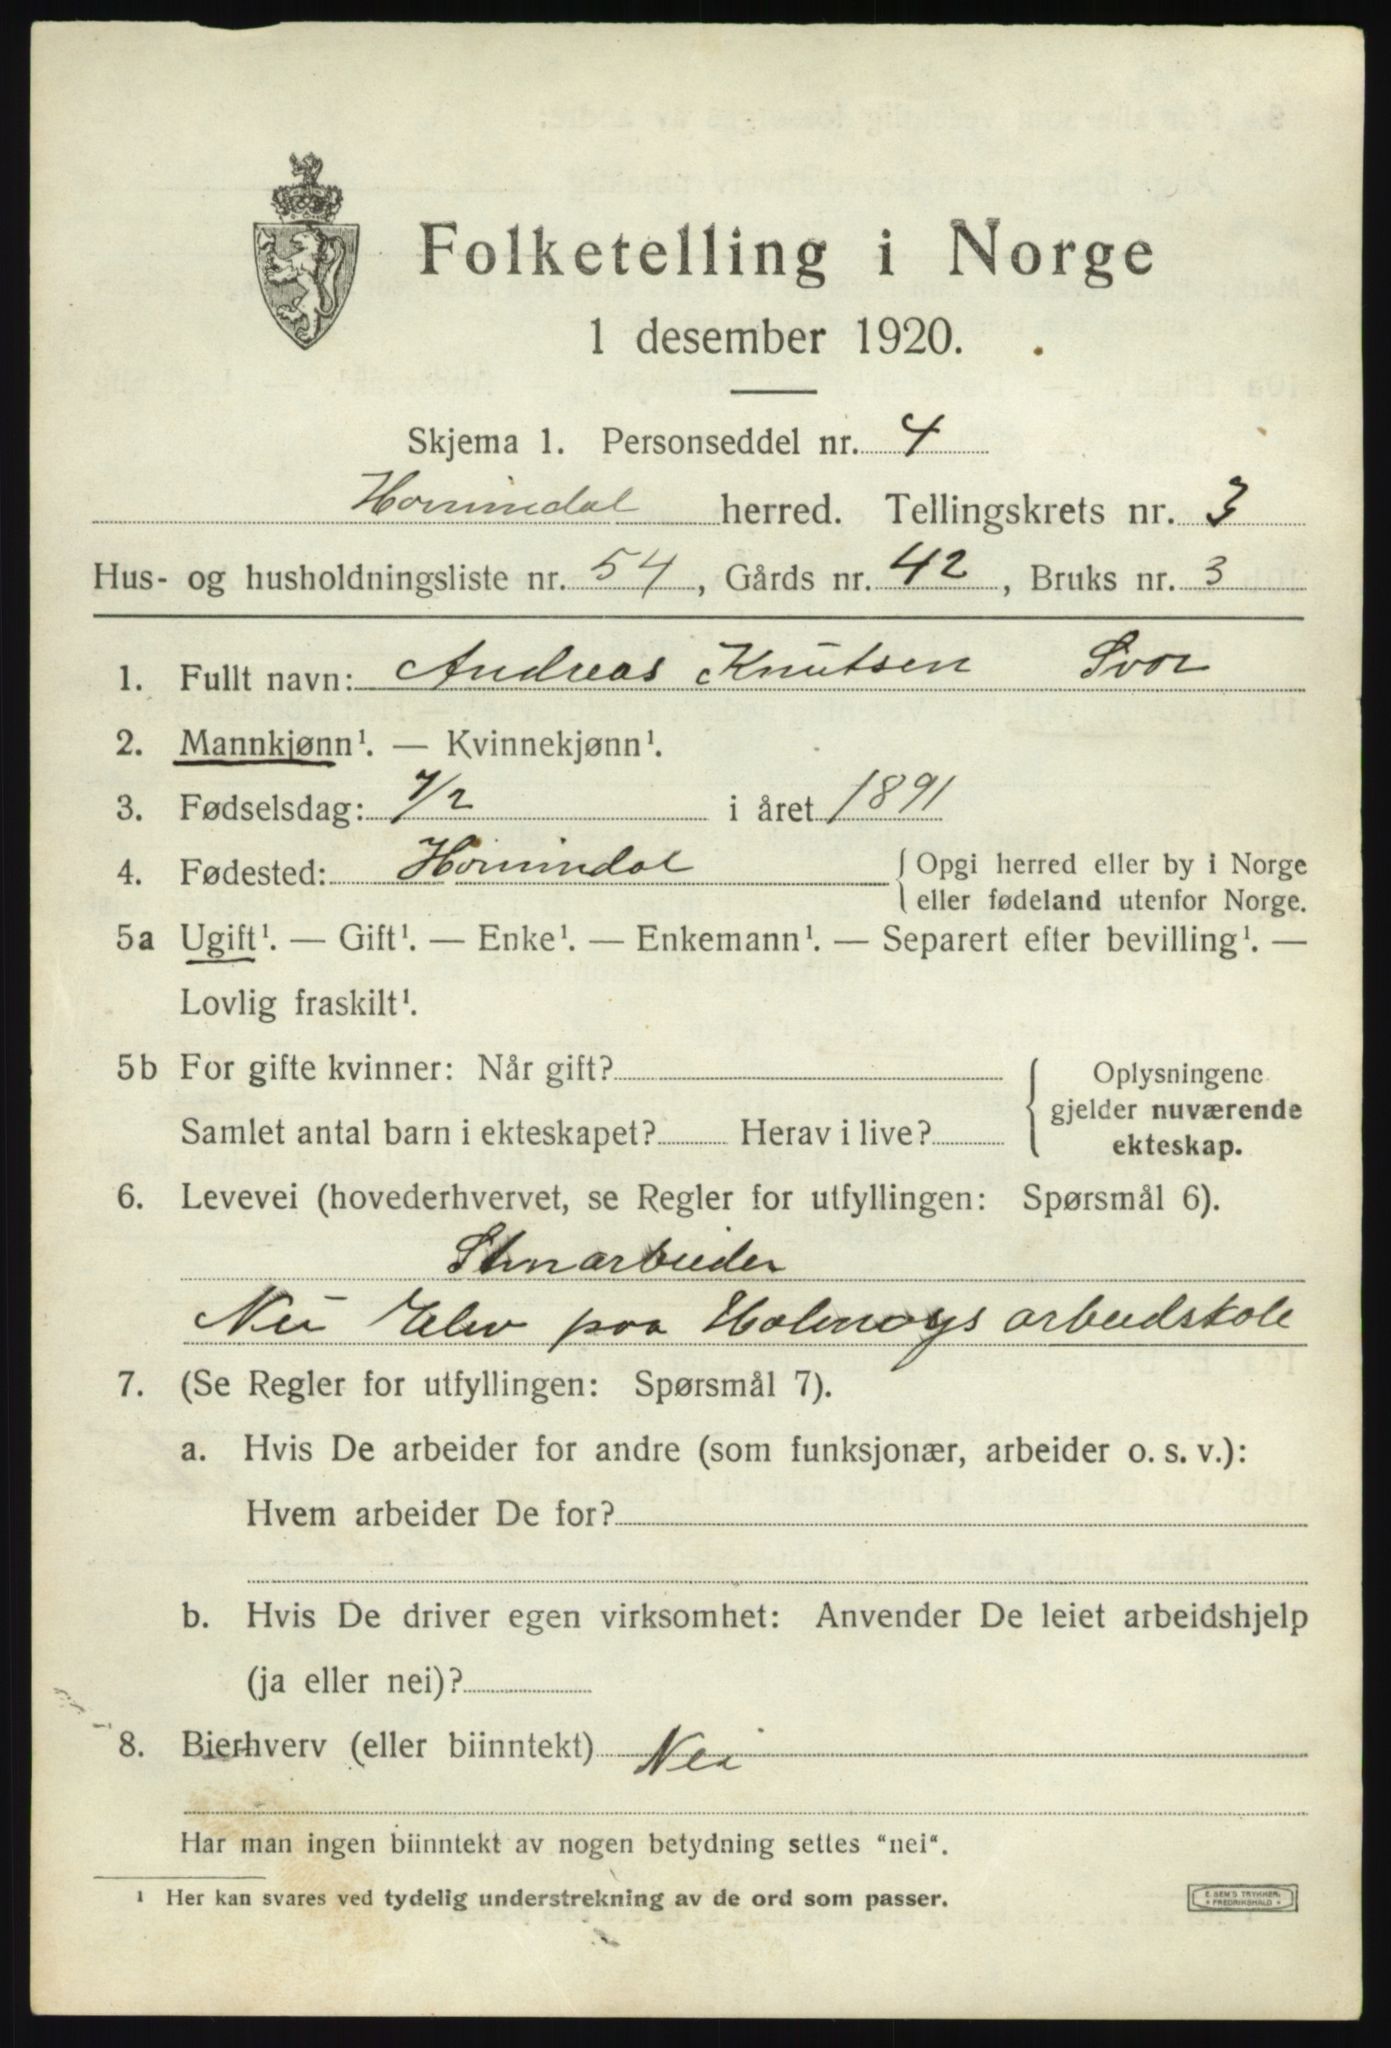 Folketelling i Norge
1 desember 1920.
Skjema 1. Personseddel nr. 4
Hornindal herred. Tellingskrets nr. 3
Hus- og husholdningsliste nr. 54, Gårds nr. 42, Bruks nr. 3
1. Fullt navn: Andreas Knutsen Svor
2. Mannkjønn¹. — Kvinnekjønn¹.
3. Fødselsdag: 7/2 i året 1891
4. Fødested: Hornindal { Opgi herred eller by i Norge
eller fødeland utenfor Norge.
5a Ugift¹. — Gift¹. — Enke¹. — Enkemann¹. — Separert efter bevilling¹. —
Lovlig fraskilt¹.
5b For gifte kvinner: Når gift?
Samlet antal barn i ekteskapet? Herav i live?
Oplysningene
gjelder nuværende
ekteskap.
6. Levevei (hovederhvervet, se Regler for utfyllingen: Spørsmål 6).
Stenarbeider
Nu Elev paa arbeidskole
7. (Se Regler for utfyllingen: Spørsmål 7).
a. Hvis De arbeider for andre (som funksjonær, arbeider o. s. v.):
Hvem arbeider De for?
b. Hvis De driver egen virksomhet: Anvender De leiet arbeidshjelp
(ja eller nei)?
8. Bierhverv (eller biinntekt) Nei
Har man ingen biinntekt av nogen betydning settes "nei".
¹ Her kan svares ved tydelig understrekning av de ord som passer.
E. SEM'S TRYKKERI
* FREDRIKSHALD *